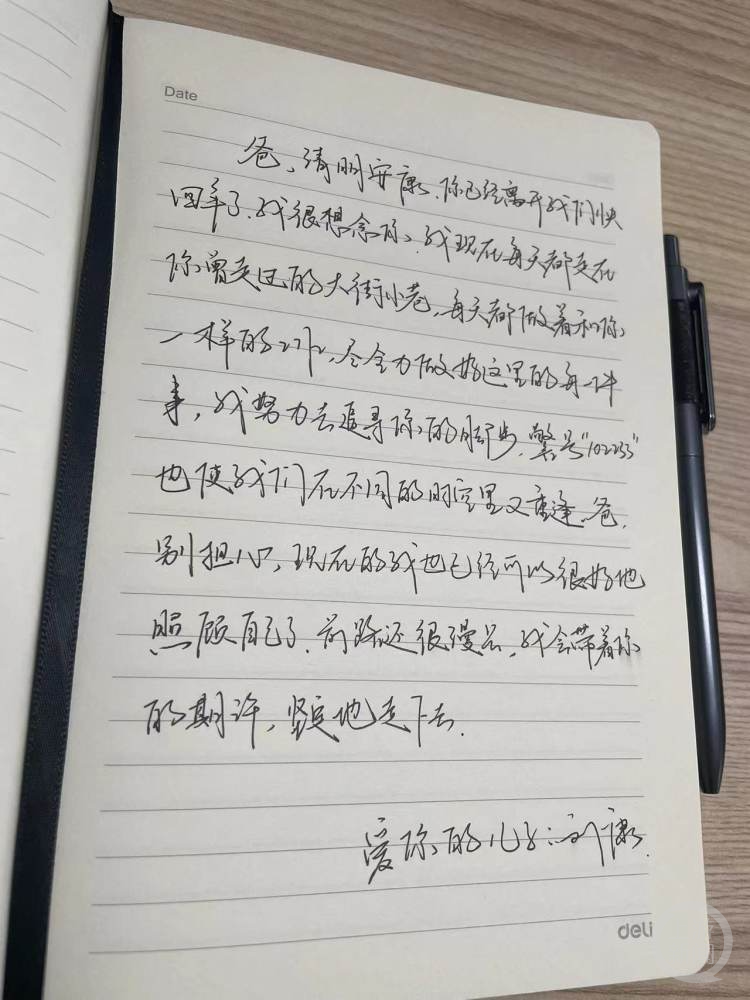 Date
爸，清明安康，你已经离开我们快
四年了，我很想念你，我现在每天都走在
你曾走过的大街小巷，每天都做着和你
一样的工作，尽全力做好这里的每一件
事，我努力去追寻你的脚步，警号"102233"
也使我们在不同的时空里又重逢。爸，
别担心，现在的我也已经可以很好地
照顾自己了，前路还很漫长，我会带着你
的期许，坚定地走下去。
爱你的儿子：刘康
deli